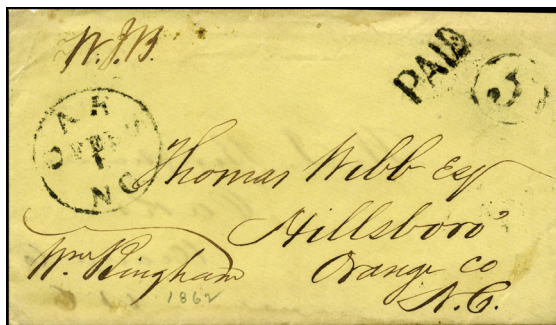 W.J.B.
PAID
3
OAKS
1
NC
Thomas Webb Esq
Hillsboro'
Orange Co
N.C.
Wm Bingham
1862